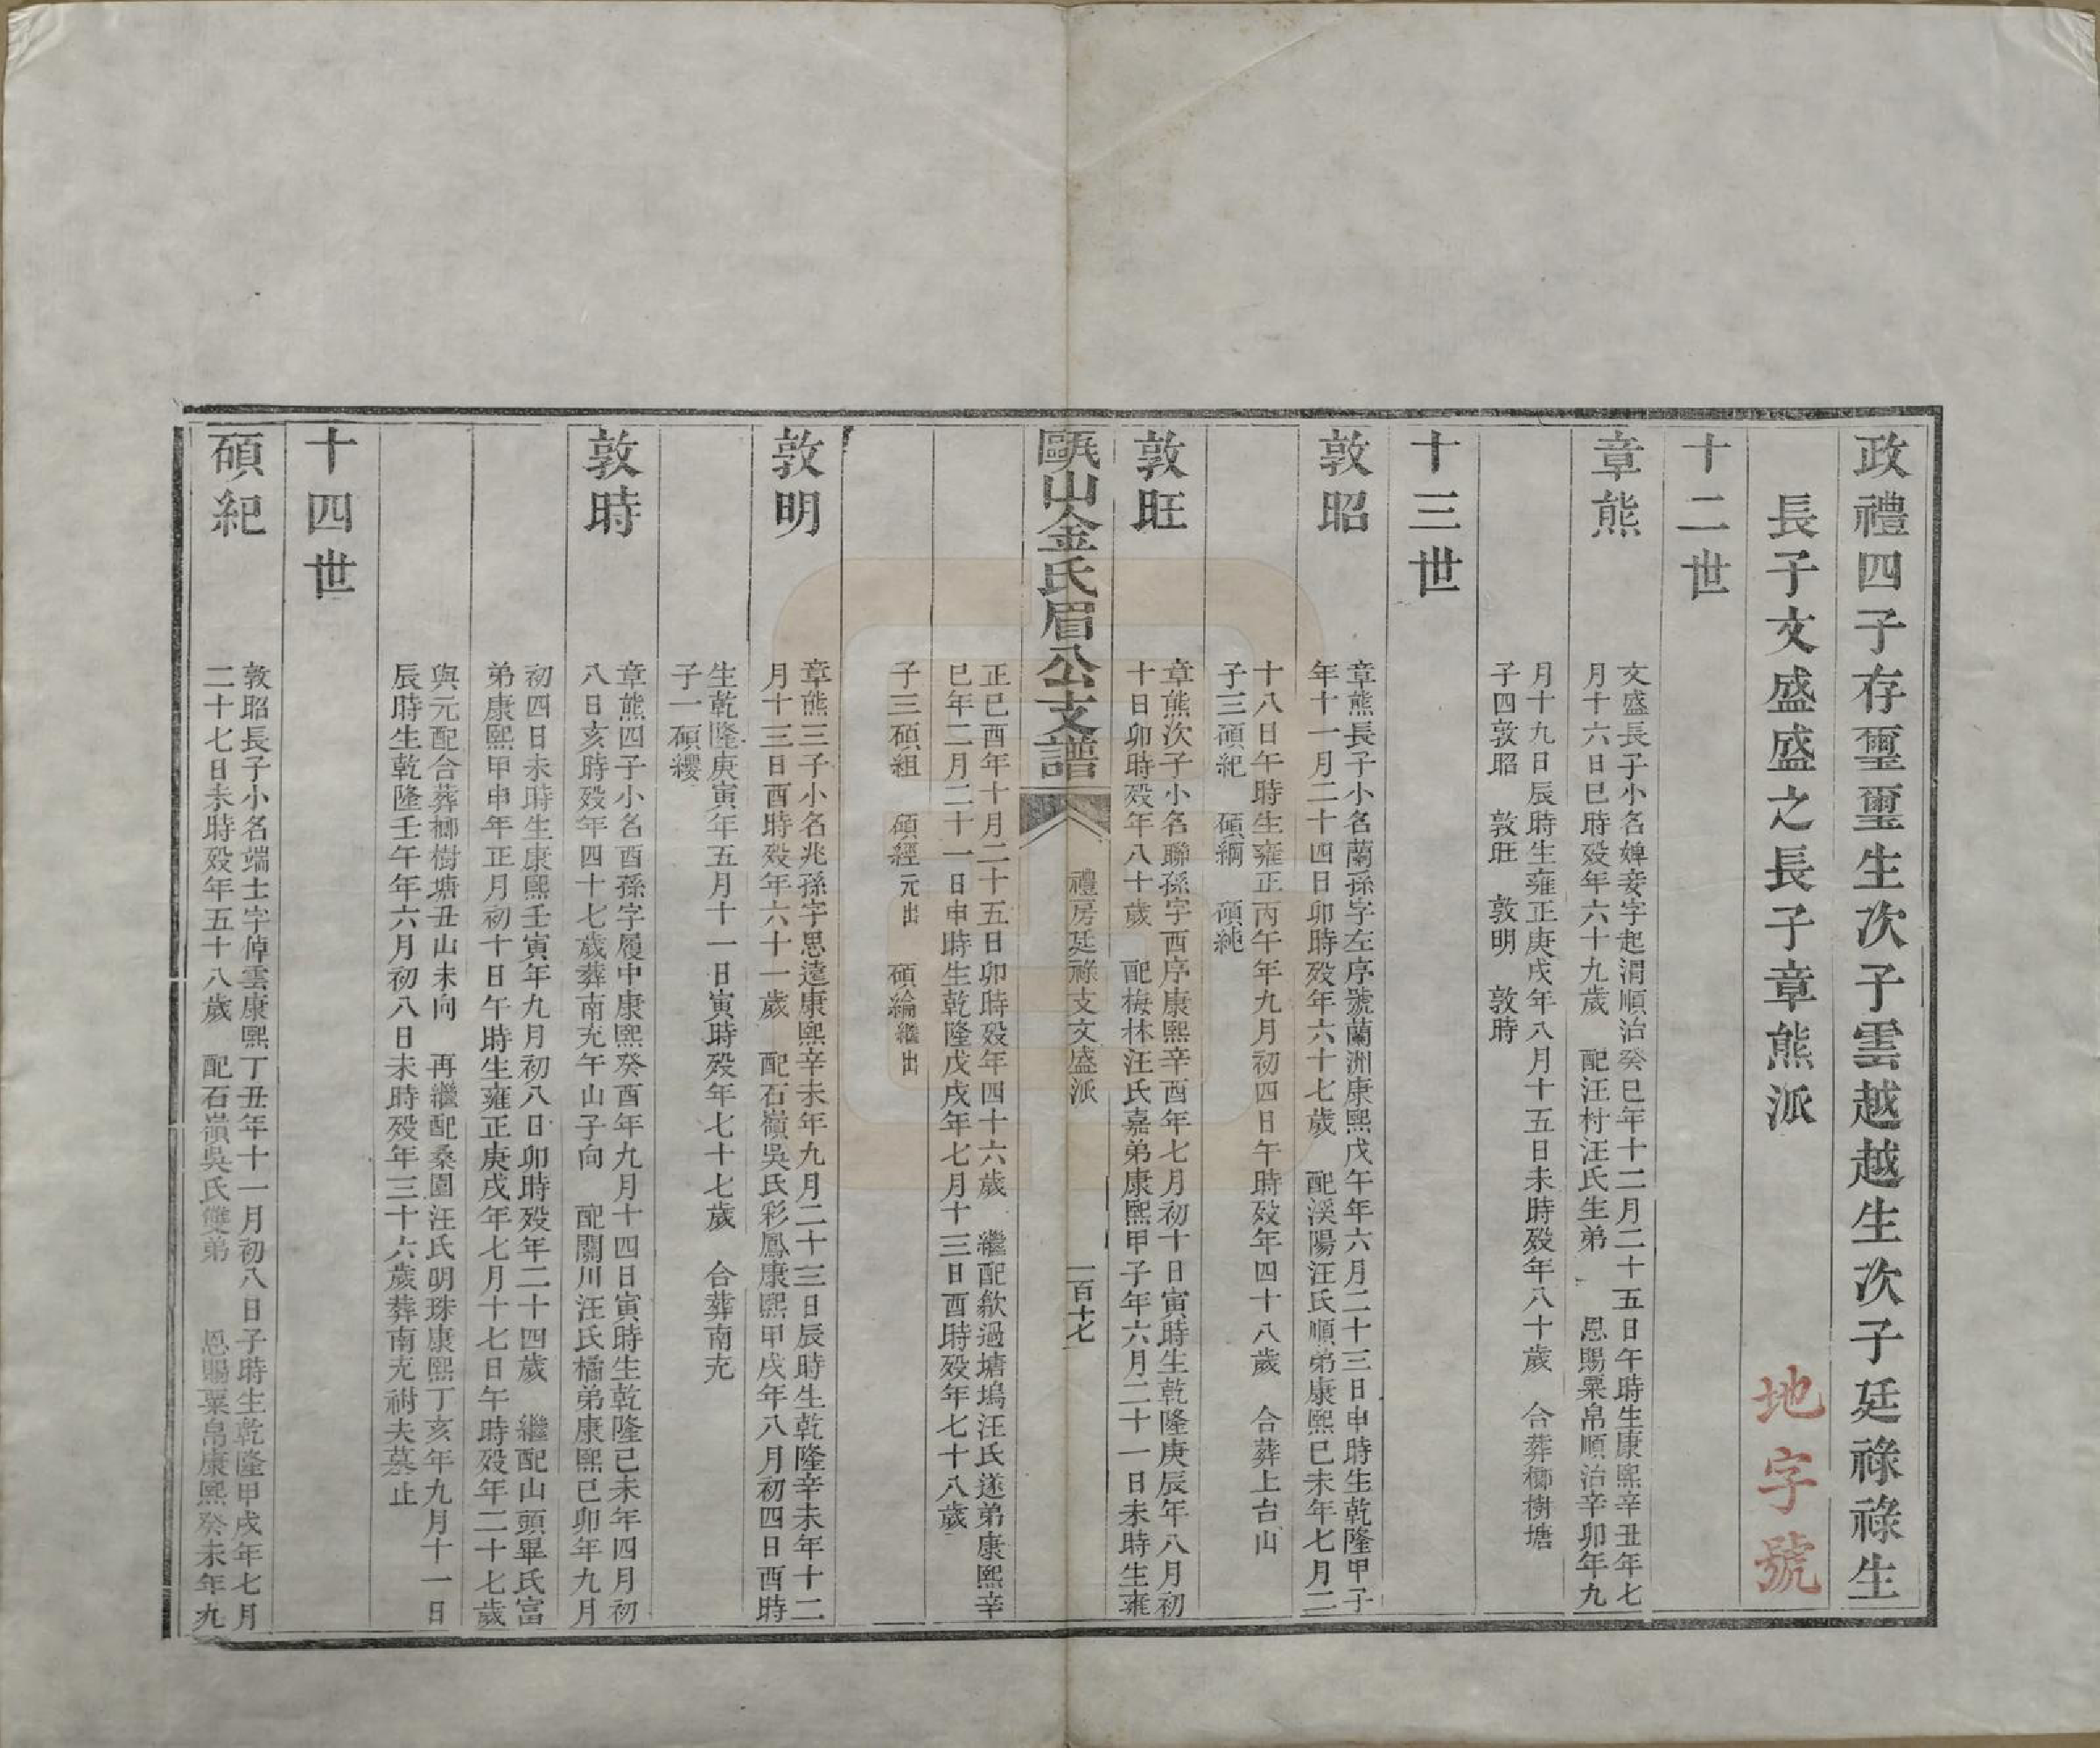 政禮四子存璽璽生次子雲越越生次子廷祿祿生
長子文盛盛之長子章熊派
地字號
十二世
章熊
文盛長子小名婢妾字起渭順治癸巳年十二月二十五日午時生康熙辛丑年七
月十六日巳時殁年六十九歲 配汪村汪氏生弟 恩賜粟帛順治辛卯年九
月十九日辰時生雍正庚戌年八月十五日未時殁年八十歲 合葬櫛樹塘
子四敦昭 敦旺 敦明 敦時
十三世
敦昭
章熊長子小名蘭孫字左序號蘭洲康熙戊午年六月二十三日申時生乾隆甲子
年十一月二十四日卯時殁年六十七歲 配溪陽汪氏順弟康熙己未年七月二
十八日午時生雍正丙午年九月初四日午時殁年四十八歲 合葬上台山
子三碩紀 碩綱 碩純
敦旺
章熊次子小名聯孫字西序康熙辛酉年七月初十日寅時生乾隆庚辰年八月初
十日卯時殁年八十歲 配梅林汪氏嘉弟康熙甲子年六月二十一日未時生雍
甌山金氏眉公支譜
禮房廷祿支文盛派
一百十七
正己酉年十月二十五日卯時殁年四十六歲 繼配歙過塘塢汪氏遂弟康熙辛
巳年二月二十一日申時生乾隆戊戌年七月十三日酉時殁年七十八歲
子三碩組 碩經元出 碩綸繼出
敦明
章熊三子小名兆孫字思遠康熙辛未年九月二十三日辰時生乾隆辛未年十二
月十三日酉時殁年六十一歲 配石嶺吳氏彩鳳康熙甲戌年八月初四日酉時
生乾隆庚寅年五月十一日寅時殁年七十七歲 合葬南充
子一碩纓
敦時
章熊四子小名酉孫字履中康熙癸酉年九月十四日寅時生乾隆己未年四月初
八日亥時殁年四十七歲葬南充午山子向 配關川汪氏橘弟康熙己卯年九月
初四日未時生康熙壬寅年九月初八日卯時殁年二十四歲 繼配山頭畢氏富
弟康熙甲申年正月初十日午時生雍正庚戌年七月十七日午時殁年二十七歲
與元配合葬櫛樹塘丑山未向 再繼配桑園汪氏明珠康熙丁亥年九月十一日
辰時生乾隆壬午年六月初八日未時殁年三十六歲葬南充祔夫墓止
十四世
碩紀
敦昭長子小名端士字倬雲康熙丁丑年十一月初八日子時生乾隆甲戌年七月
二十七日未時殁年五十八歲 配石嶺吳氏雙弟 恩賜粟帛康熙癸未年九